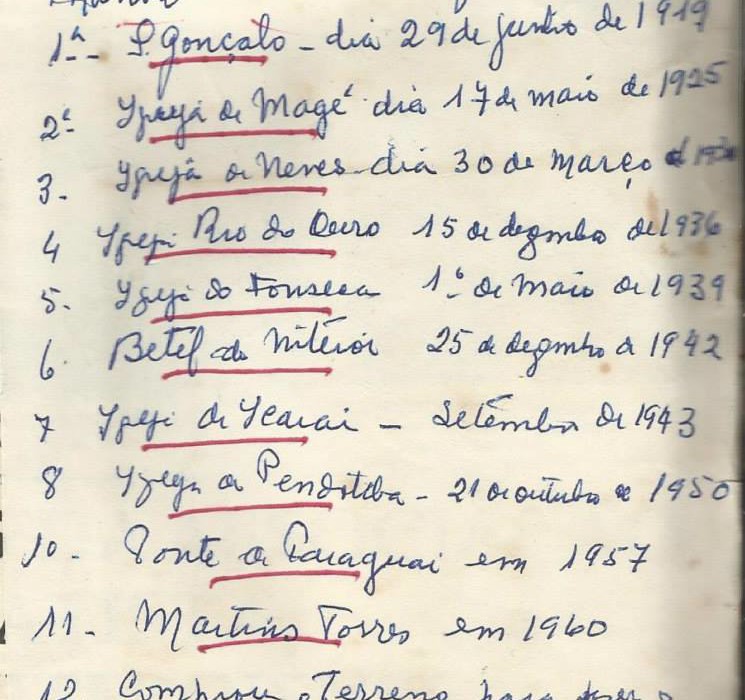 1ª - S. Gonçalo - dia 29 de junho de 1919
2ª Igreja de Magé dia 17 de maio de 1925
3. Igreja de Neves dia 30 de março
4 Igreja Rio do Ouro 15 de dezembro de 1936
5. Igreja do Fonseca 1º de Maio de 1939
6. Betel de Niterói 25 de dezembro de 1942
7 Igreja de Icarai - Setembro de 1943
8 Igreja de Pendotiba - 21 de outubro de 1950
10. Ponte de Paraguai em 1957
11 - Martins Torres em 1960
12 Comprou o Terreno para